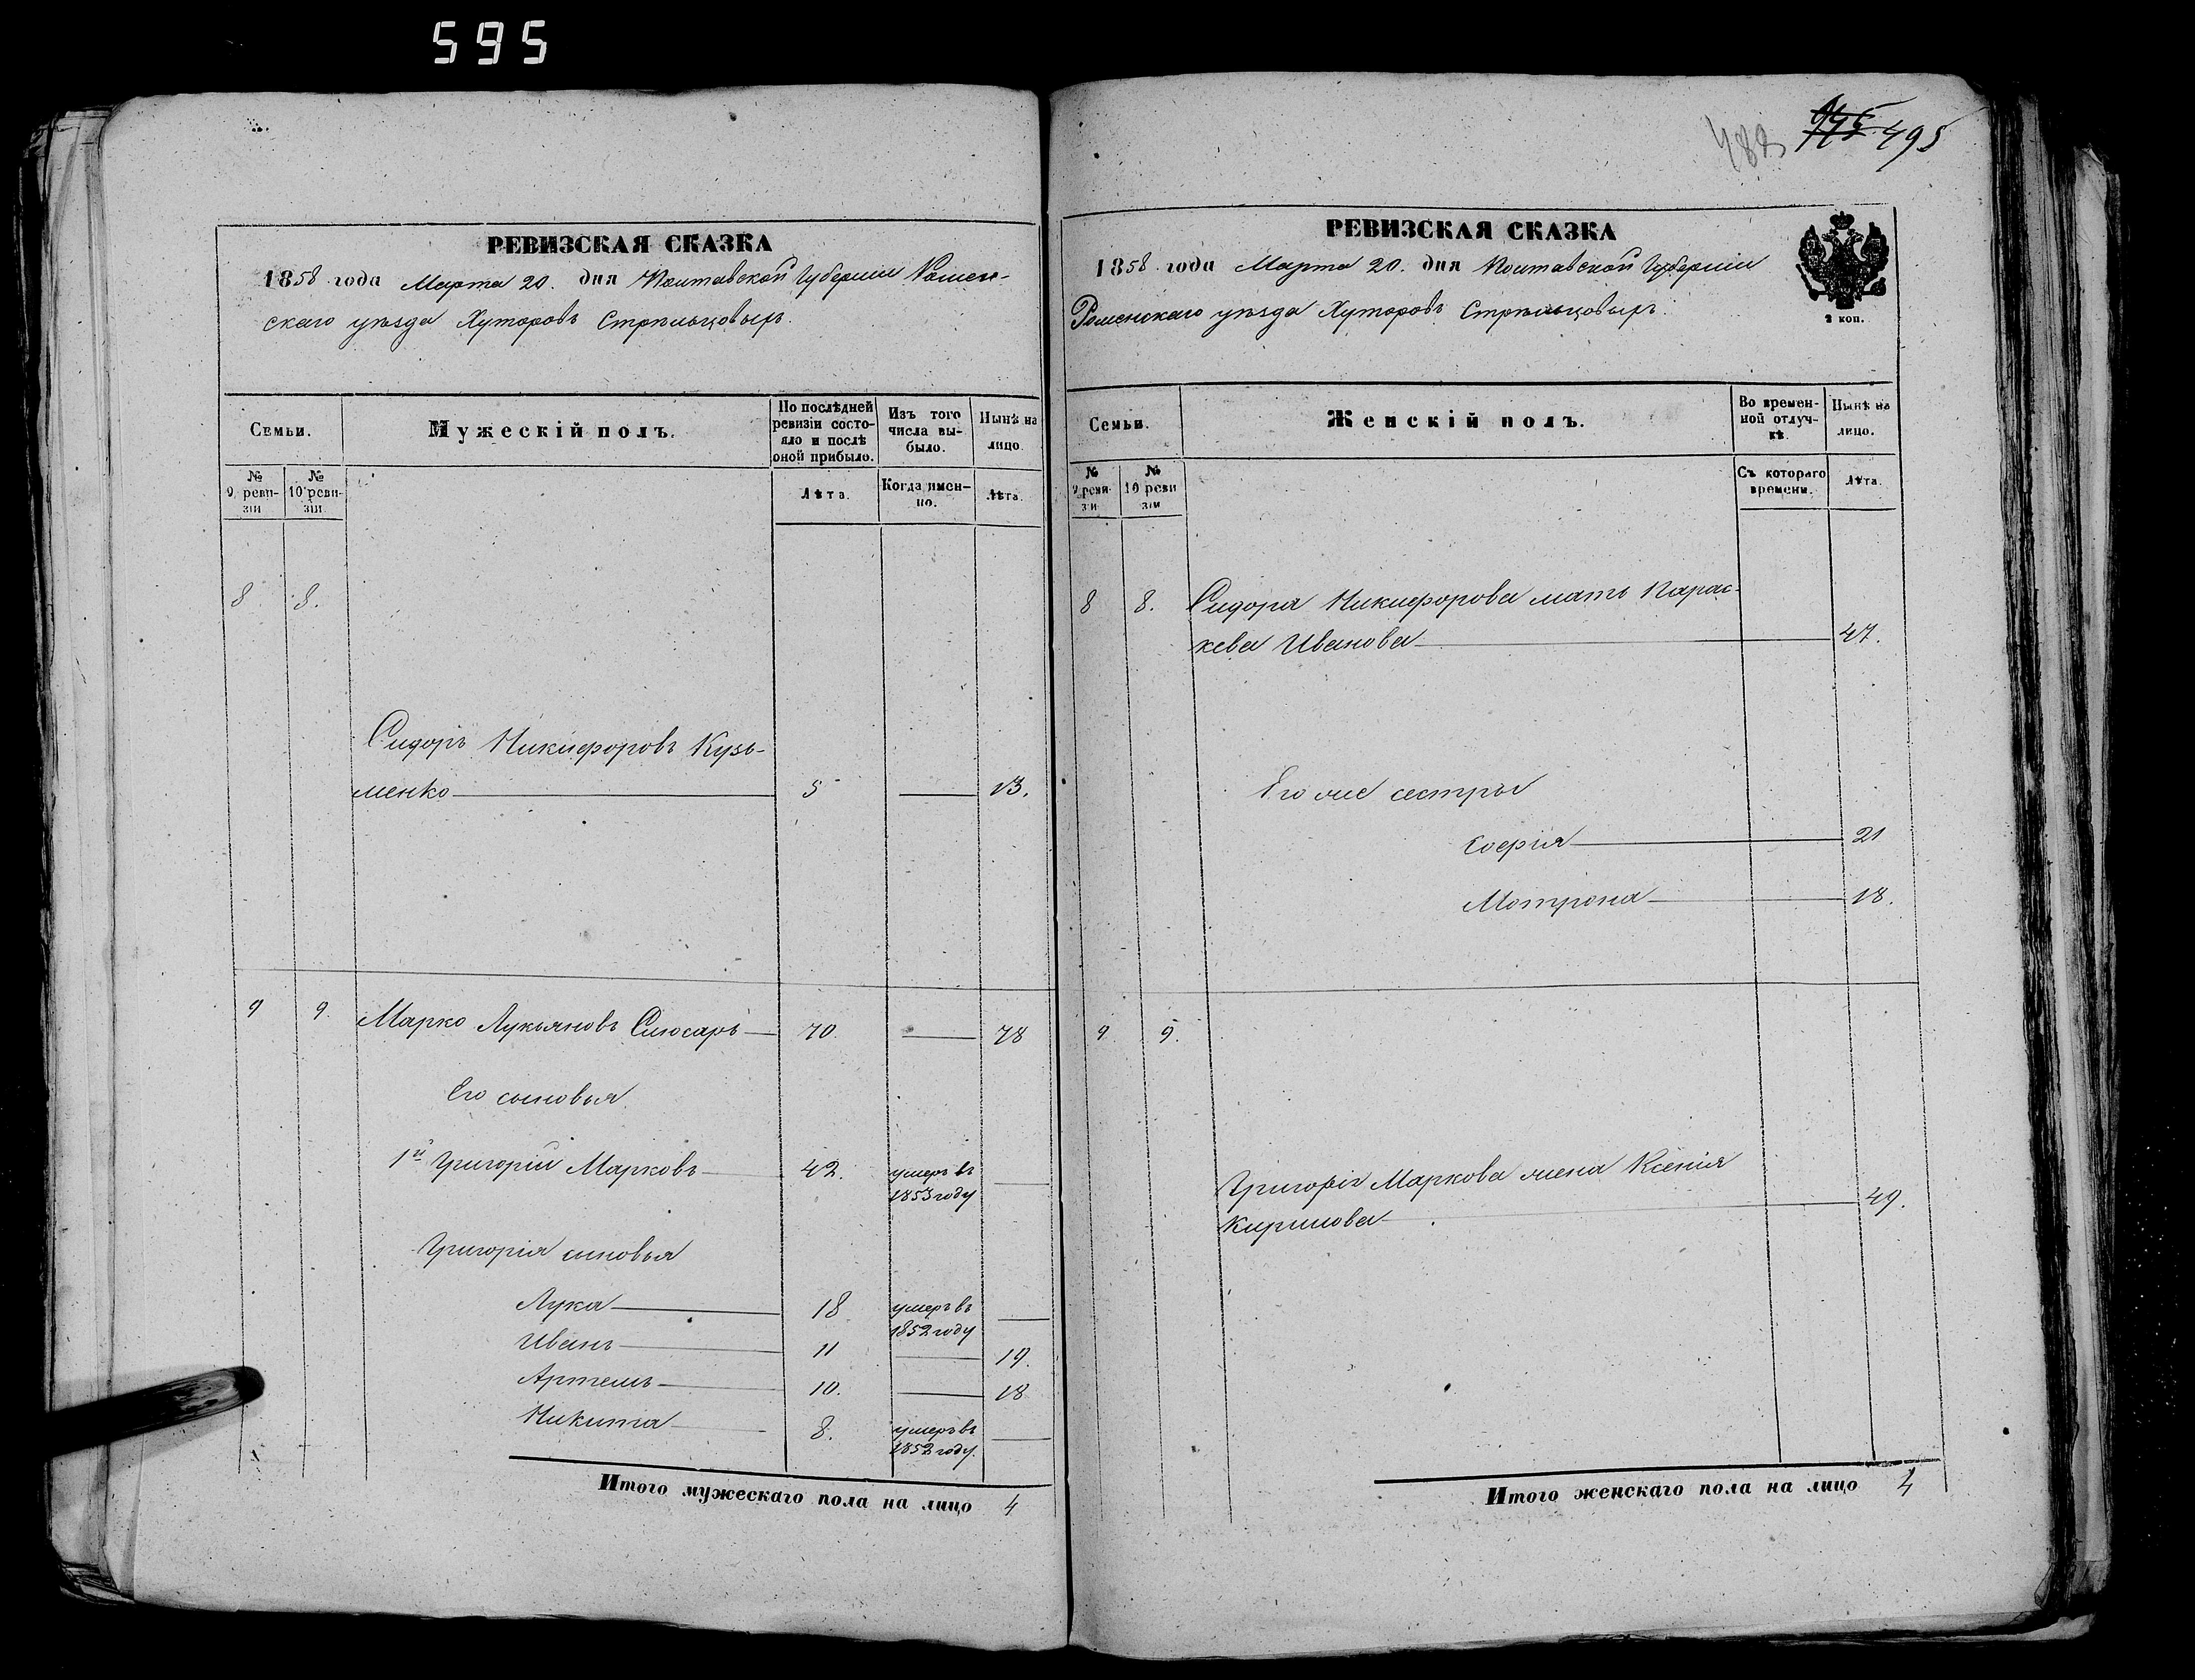 595
488 495
РЕВИЗСКАЯ СКАЗКА
1858 года Марта 20. дня Полтавской Губерніи Ромен-
скаго уѣзда Хуторовъ Стрѣльцовыхъ.
Семьи.
Мужескій полъ.
По послѣдней ревизіи состояло и послѣ оной прибыло.
Изъ того числа выбыло.
Нынѣ на лицо.
№ 9 ревизіи
№ 10 ревизіи
Лѣта.
Когда именно.
Лѣта.
8 8.
Сидоръ Никифоровъ Кузь-
менко 5 13.
9 9. Марко Лукьяновъ Слюсаръ 70. 78
Его сыновья
1й Григорій Марковъ 42. умеръ въ
1853 году
Григорія сыновья
Лука 18 умеръ въ
1852 году
Иванъ 11 19.
Артемъ 10. 18
Никита 8. умеръ въ
1852 году.
Итого мужескаго пола на лицо 4
РЕВИЗСКАЯ СКАЗКА
1858 года Марта 20. дня Полтавской Губерніи
Роменскаго уѣзда Хуторовъ Стрѣльцовыхъ.
2 коп.
Семьи.
Женскій полъ.
Во временной отлучкѣ.
Нынѣ на лицо.
№ 9 ревизіи
№ 10 ревизіи
Съ котораго времени.
Лѣта.
8 8. Сидора Никифорова мать Парас-
кева Иванова 47.
Его же сестры
Софія 21
Мотрона 18.
9 9.
Григорія Маркова жена Ксенія
Кирилова 49.
Итого женскаго пола на лицо 4